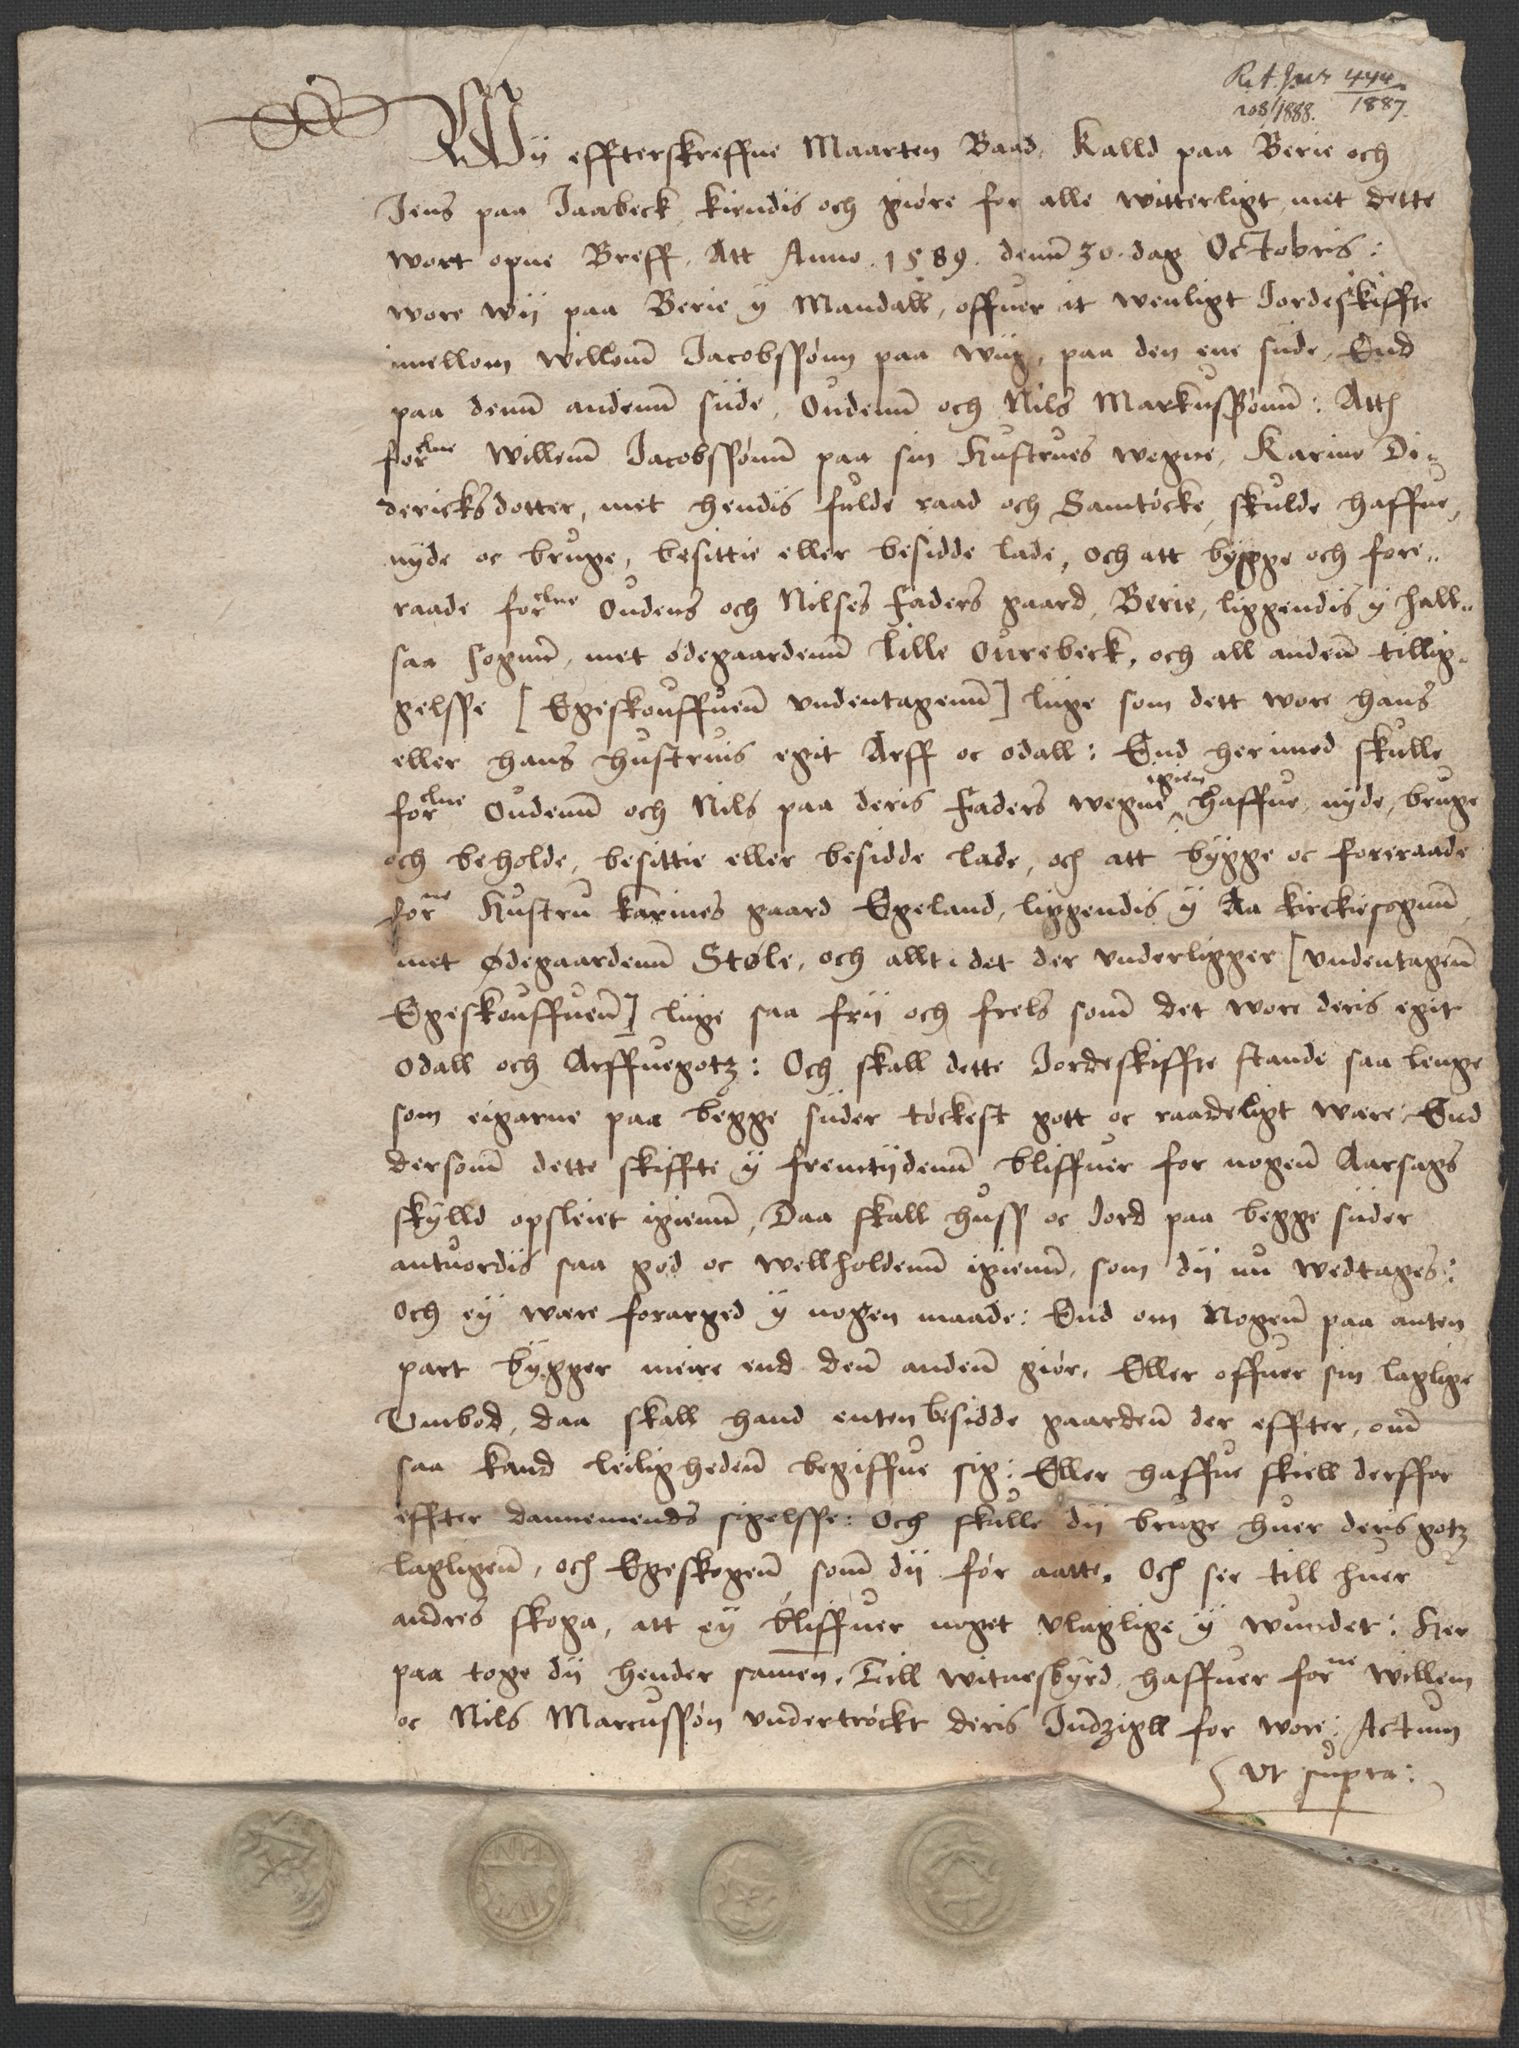 R.A. Jour 444/1887
208/1888.
Wij effterskreffne Maarten Baad, Kalld paa Berie och
Jens paa Jaabeck, kiendis och giøre for alle witterligt, met dette
wort opne Breff, Att Anno. 1589. denn 30. dag Octobris:
wore wij paa Berie ÿ Mandall, offuer it wenligt Jordeskiffte
imellom Willom Jacobssønn paa Wiig, paa den ene siide, End
paa denn andenn siide, Oudenn och Nils Markussønn: Atth
forne Willem Jacobssønn paa sin Hustrues wegne, Karine Di-
dericksdotter, met hendis fulde raad och Samtøcke, skulde haffue,
nyde oc bruge, besittie eller besidde lade, och att bygge och fore-
raade forne Oudens och Nilses Faders gaard, Berie, liggendis ÿ Hall-
saa sogenn, met ødegaardenn Lille Ourebeck, och all anden tillig-
gelsse [Egeskouffuenn vndentagenn] liige som dett wore hans
eller hans hustruis egit Arff oc odall: End herimod skulle
forne Oudenn och Nils paa deris Faders wegne igien haffue, nyde, bruge
och beholde, besittie eller besidde lade, och att bygge oc foreraade
forne Hustru Karines gaard Egeland, liggendis ÿ Aa kirckiesogenn,
met Ødegaardenn Støle, och allt det der vnderligger [vndentagenn
Egeskouffuenn] liige saa frij och frels som det wore deris egit
Odall och Arffuegotz: Och skall dette Jordeskiffte stande saa lenge
som eigarne paa begge siider tøckest gott oc raadeligt were: End
dersom dette skiffte ÿ fremtijdenn bliffuer for nogen Aarsags
skylld opsleiet igienn, Daa skall huss oc Jord paa begge siider
antuordis saa god oc wellholdenn igienn, som dij nu wedtages:
Och eÿ være forarged ÿ nogen maade: End om Nogen paa anten
part bygger meire end den anden giør, Eller offuer sin laglige
Vmbod, daa skall hand enten besidde gaarden der effter, om
saa kand leilighedenn begiffue sig: Eller haffue skiell derffor
effter dannemends sigelsse: Och skulle dij bruge huer deris gotz
lagligenn, och Egeskogenn som dij før aatte, Och see till huer
andres skoga, att eÿ bliffuer noget vlaglige ÿ wundet: Her
paa toge dij hender samen, Till witnesbyrd haffuer forne Willem
oc Nils Marcussøn vndertrøckt deris Indzigll for wore: Actum
vt supra:
NM